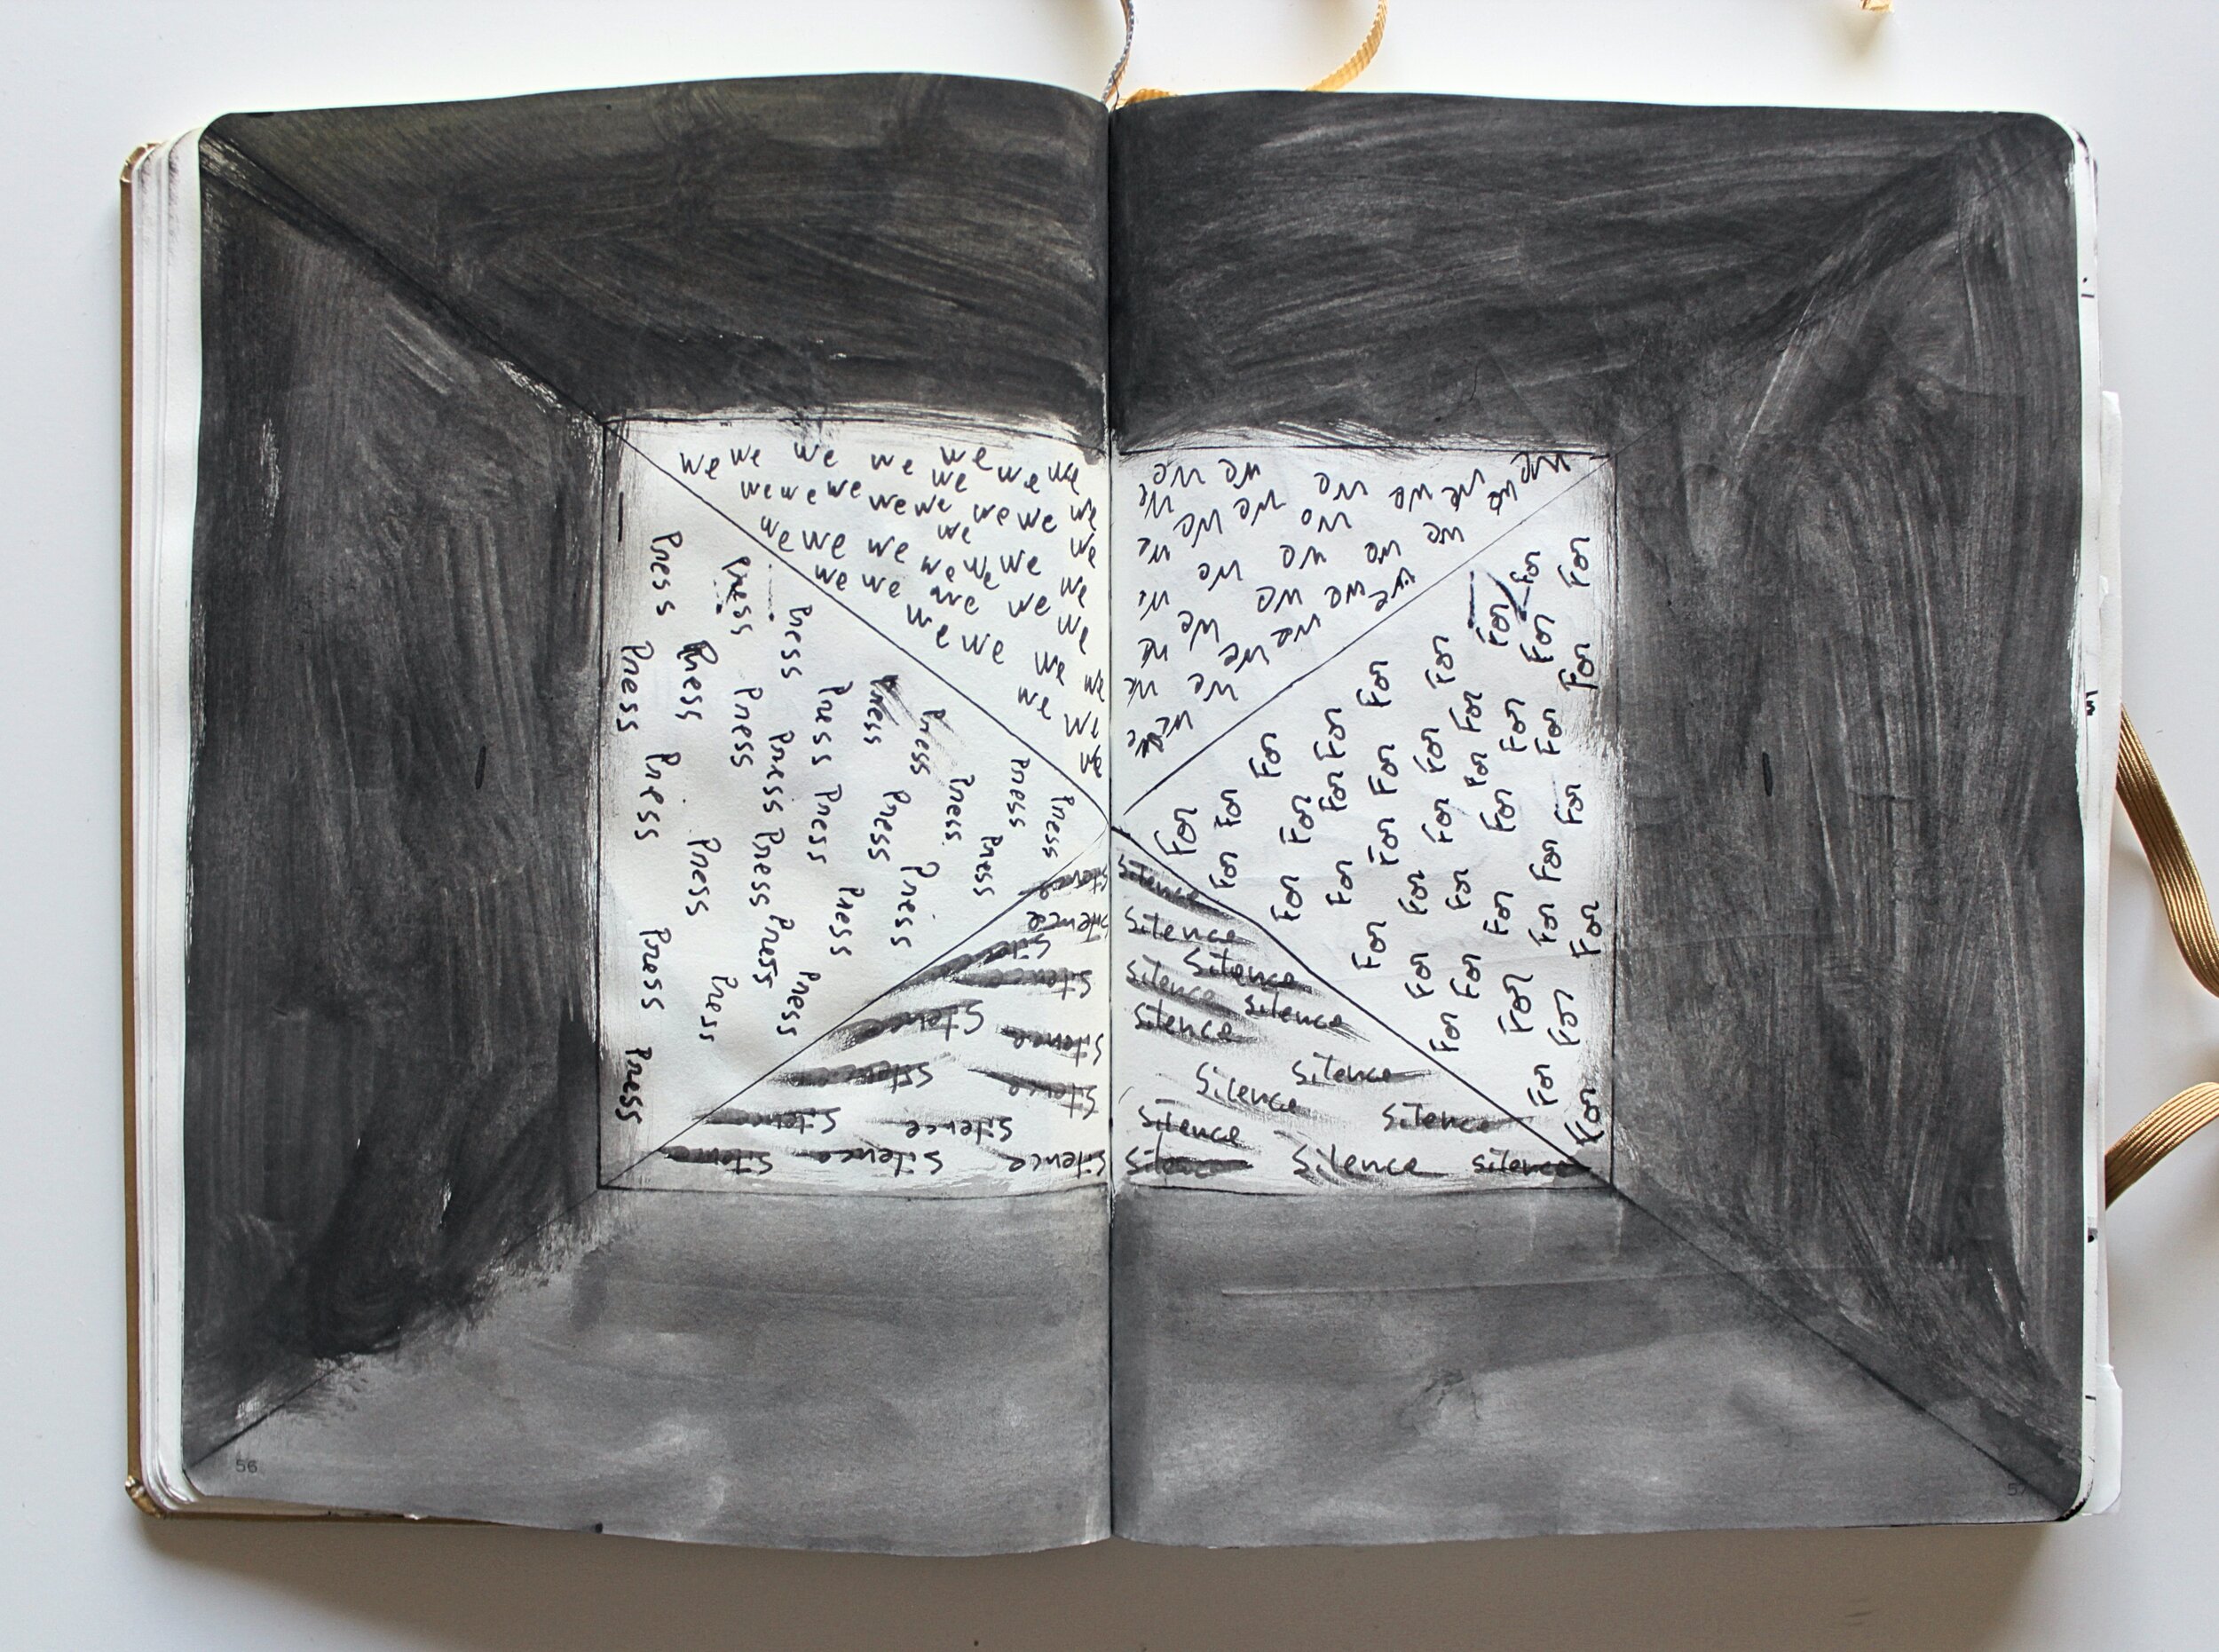 we we we we we we we
we we we we we we we we
we we we we we we we we
we we we we we we
we we we we we
we we
we
we we we we we we we
we we we we we
we we we we we
we we we we
we we we
we we
we we
Press Press Press
Press Press Press Press Press Press
Press Press Press Press Press Press Press
Press Press Press Press Press
Press Press Press Press
Press
For For
For For For
For For For For For
For For For For For
For For For For For For
For For For For For
For For For For For
For For For For For
For For For For
For For For
For For
Silence
Silence
Silence
Silence Silence
Silence Silence
Silence
Silence Silence
Silence Silence Silence Silence
Silence
Silence
Silence
Silence Silence
Silence
Silence Silence
Silence Silence
Silence Silence Silence
56
57